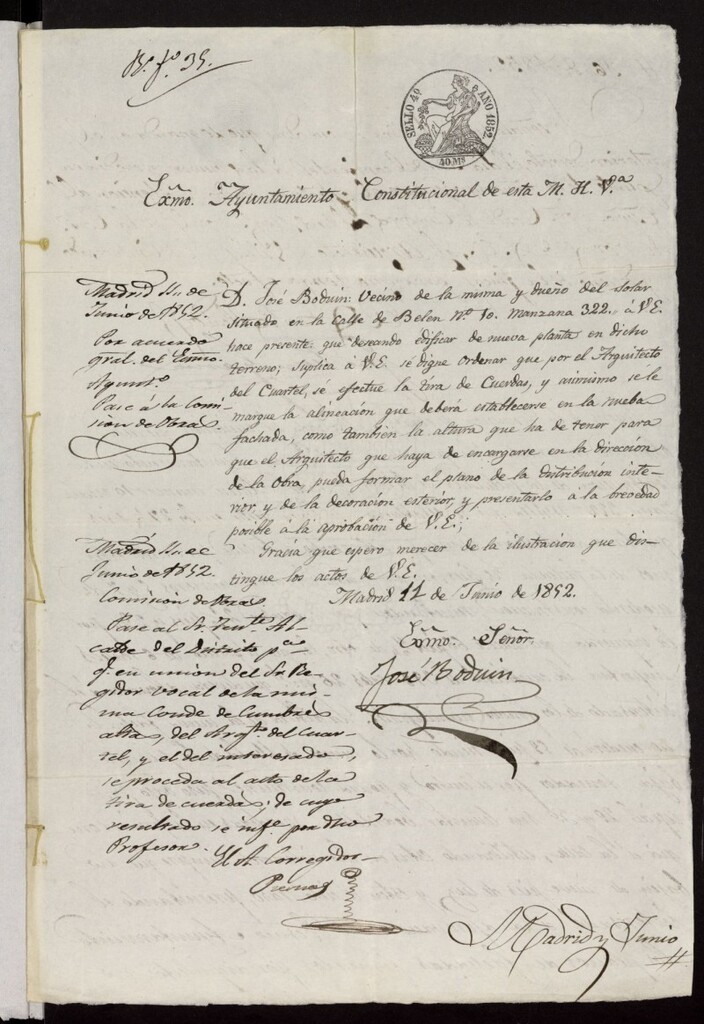 Rº. fº. 35.
SELLO 4º AÑO 1852
40 Ms
Exmo. Ayuntamiento Constitucional de esta M. H. V.ª
D. José Boduin: Vecino de la misma y dueño del solar
situado en la Calle de Belen Nº. 10. Manzana 322. á V.E.
hace presente: que deseando edificar de nueva planta en dicho
terreno; Suplica á V.E. se digne ordenar que por el Arquitecto
del Cuartel, se efectue la tira de Cuerdas, y asimismo se le
marque la alineacion que deberá establecerse en la nueba
fachada, como tambien la altura que ha de tener para
que el Arquitecto que haya de encargarse en la direccion
de la obra, pueda formar el plano de la distribucion inte-
rior, y de la decoracion esterior, y presentarlo a la brevedad
posible á la aprobacion de V.E.;
Gracia que espero merecer de la ilustracion que dis-
tingue los actos de V.E.
Madrid 11 de Junio de 1852.
Exmo. Señor.
José Boduin
Madrid 11 de
Junio de 1852.
Por acuerdo
gral. del Exmo.
Ayuntº.
Pase á la Comi-
sion de Obras
Madrid 11 de
Junio de 1852.
Comision de Obras
Pase al Sr. Tente. Al-
calde del Distrito pª
q. en union del Sr. Re-
gidor vocal de la mis-
ma Conde de Cumbres
altas, del Arqto. del Cuar-
tel, y el del interesado,
se proceda al acto de la
tira de cuerdas; de cuyo
resultado se infe. por dho
Profesor.
El A. Corregidor
Madrid y Junio